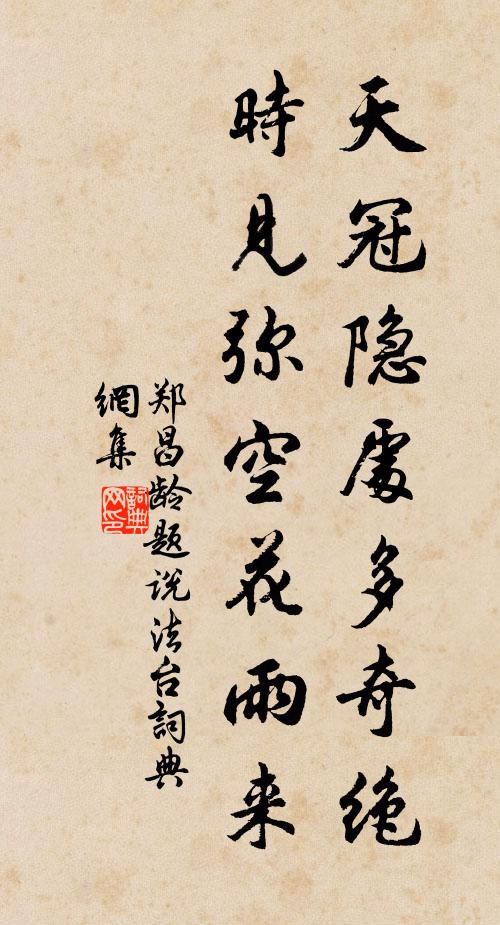 天冠隐處多奇绝
時見弥空花雨来
郑昌龄题说法台詞典
網集
詞典
网印